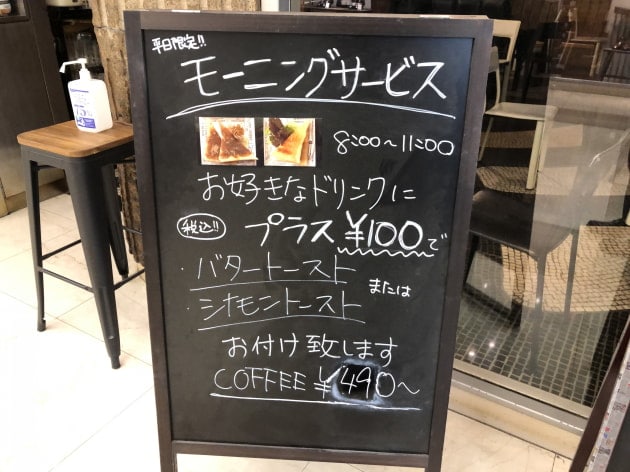 平日限定!!
モーニングサービス
8:00～11:00
お好きなドリンクに
税込!! プラス¥100で
・バタートースト
または
・シナモントースト
お付け致します
COFFEE ¥490～